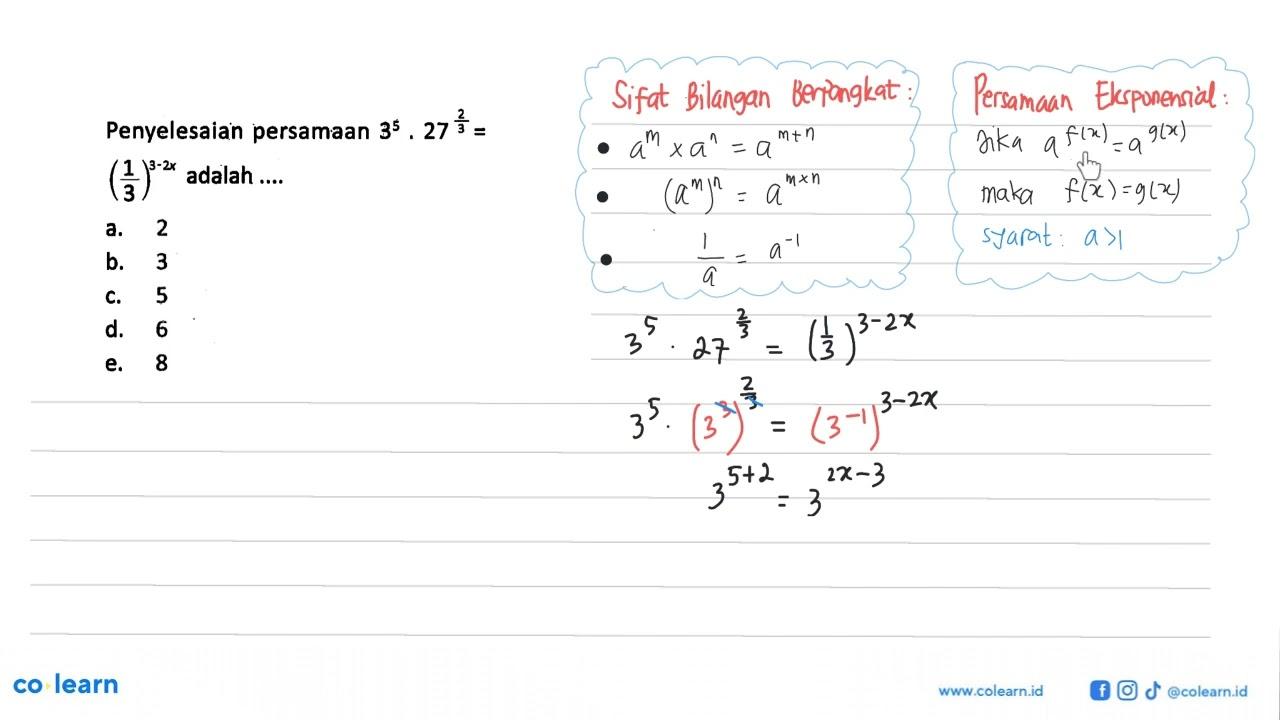 Penyelesaian persamaan 3⁵ . 27^(2/3) =
(1/3)^(3-2x) adalah ....
a. 2
b. 3
c. 5
d. 6
e. 8
Sifat Bilangan Berpangkat :
• a^m × a^n = a^(m+n)
• (a^m)^n = a^(m×n)
• 1/a = a^(-1)
Persamaan Eksponensial :
Jika a^(f(x)) = a^(g(x))
maka f(x) = g(x)
syarat : a>1
3^5 . 27^(2/3) = (1/3)^(3-2x)
3^5 . (3^3)^(2/3) = (3^(-1))^(3-2x)
3^(5+2) = 3^(2x-3)
co learn
www.colearn.id @colearn.id